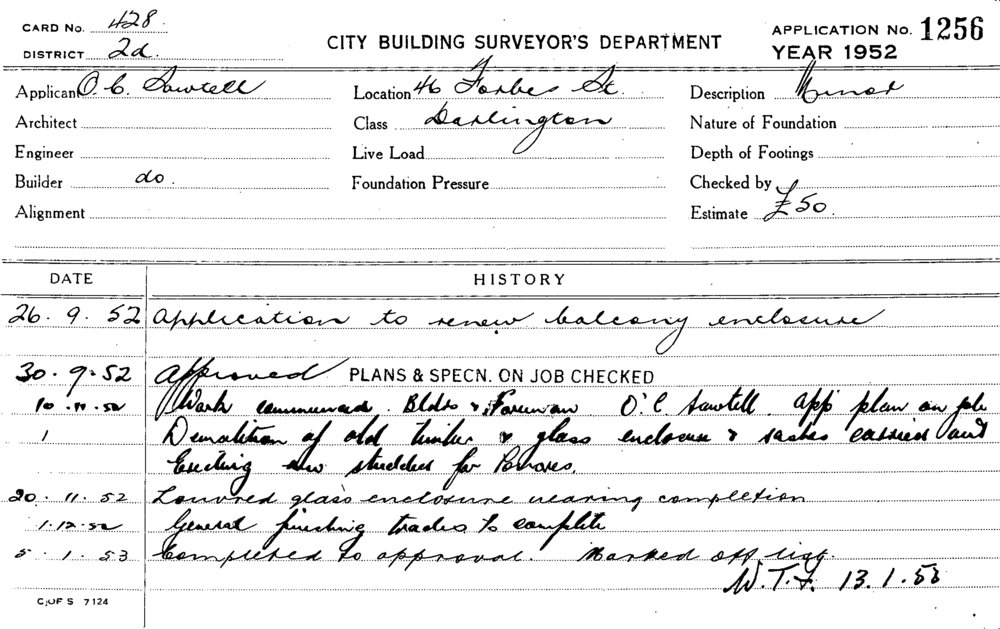 CARD No. 428.
DISTRICT 2d.
CITY BUILDING SURVEYOR'S DEPARTMENT
APPLICATION No. 1256
YEAR 1952
Applicant O. C. Sawtell
Location 46 Forbes St.
Description Minor
Architect
Class Darlington
Nature of Foundation
Engineer
Live Load
Depth of Footings
Builder do.
Foundation Pressure
Checked by
Alignment
Estimate £50.
DATE HISTORY
26. 9. 52 Application to renew balcony enclosure
30. 9. 52 Approved PLANS & SPECN. ON JOB CHECKED
10. 11. 52 Work commenced. Bldr & Foreman O. C. Sawtell. App plan on job
1 Demolition of old timber & glass enclosure & sashes carried out
Erecting new studded for
20. 11. 52 Louvred glass enclosure nearing completion
1. 12. 52 General finishing trades to complete
5. 1. 53 Completed to approval. Marked off list.
W.T.F. 13.1.53
C. OF S 7124